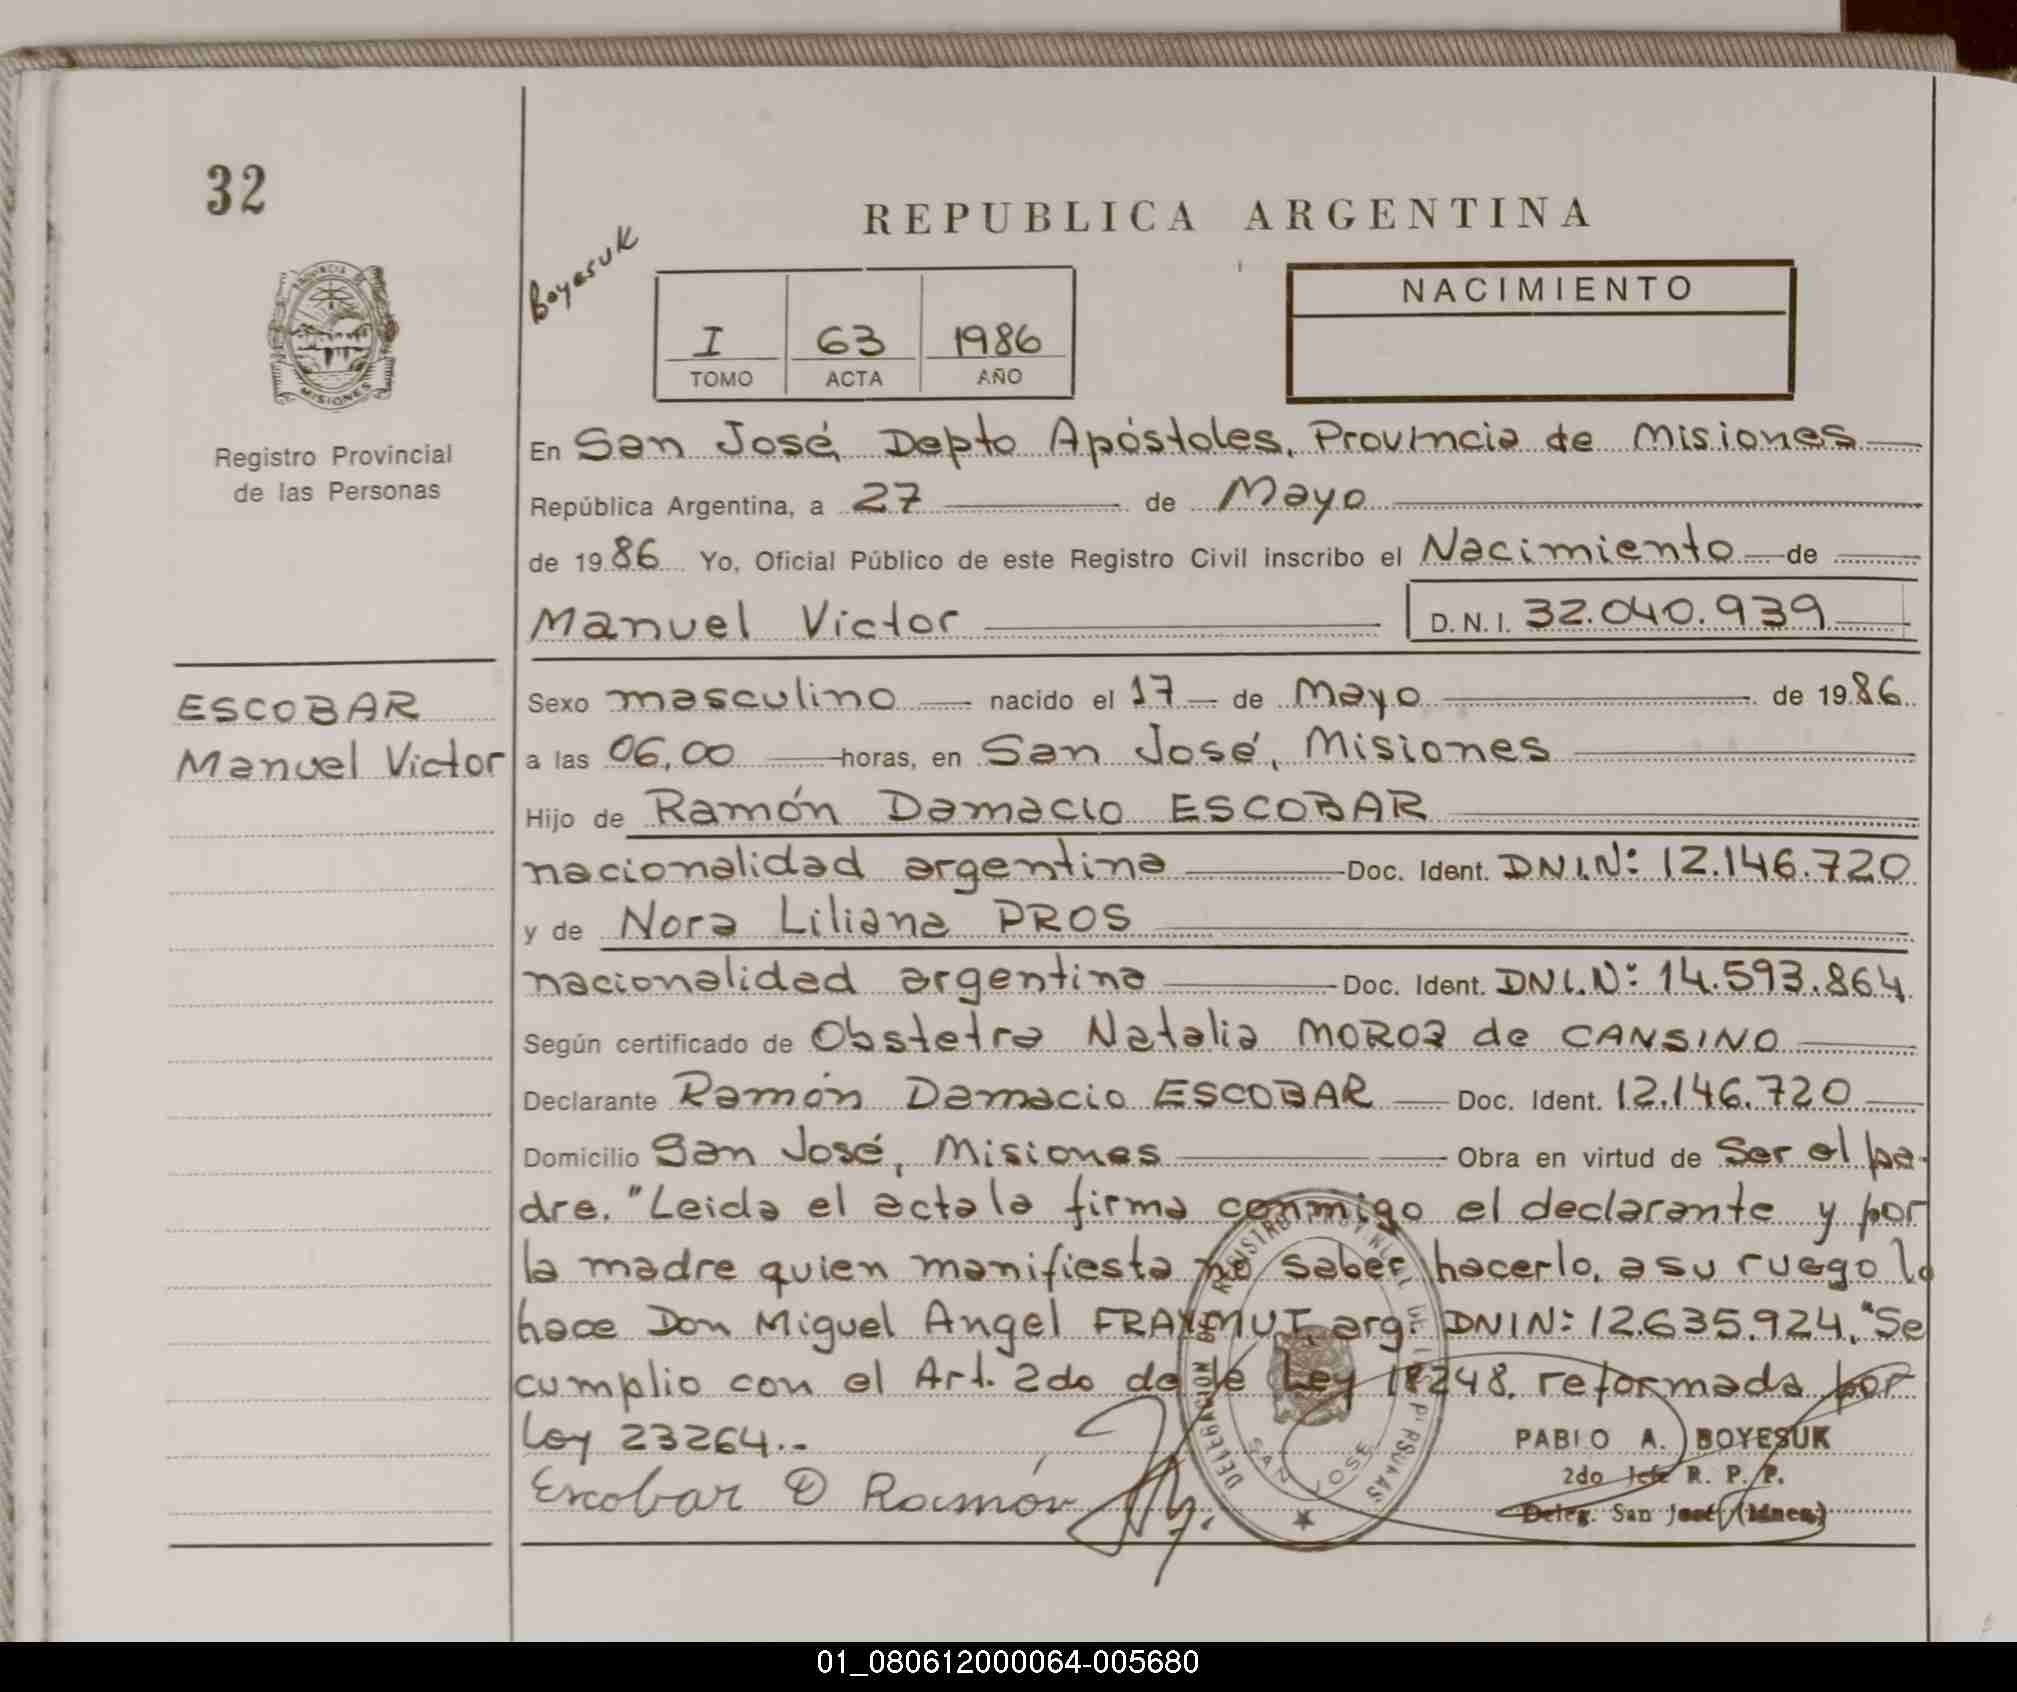 32
REPUBLICA ARGENTINA
Boyesuk
I 63 1986
TOMO ACTA AÑO
NACIMIENTO
PROVINCIA DE
MISIONES
Registro Provincial
de las Personas
En San José, Depto Apóstoles, Provincia de Misiones
República Argentina, a 27 de Mayo
de 1986 Yo, Oficial Público de este Registro Civil inscribo el Nacimiento de
Manuel Victor D.N.I. 32.040.939
ESCOBAR
Manuel Victor
Sexo masculino nacido el 17 de Mayo de 1986
a las 06,00 horas, en San José, Misiones
Hijo de Ramón Damacio ESCOBAR
nacionalidad argentina Doc. Ident. DNI.N: 12.146.720
y de Nora Liliana PROS
nacionalidad argentina Doc. Ident. DNI.N: 14.593.864
Según certificado de Obstetra Natalia MOROZ de CANSINO
Declarante Ramón Damacio ESCOBAR Doc. Ident. 12.146.720
Domicilio San José, Misiones Obra en virtud de Ser el pa-
dre. "Leida el acta la firma conmigo el declarante y por
la madre quien manifiesta no saber hacerlo, a su ruego lo
hace Don Miguel Angel FRAYMUT, arg. DNIN: 12.635.924. "Se
cumplio con el Art. 2do de la Ley 18248, reformada por
Ley 23264.-
Escobar D Ramón
DELEGACION DEL REGISTRO PROVINCIAL DE LAS PERSONAS
SAN JOSE
PABLO A. BOYESUK
2do Jefe R. P. P.
Deleg. San José (Mnes)
01_080612000064-005680